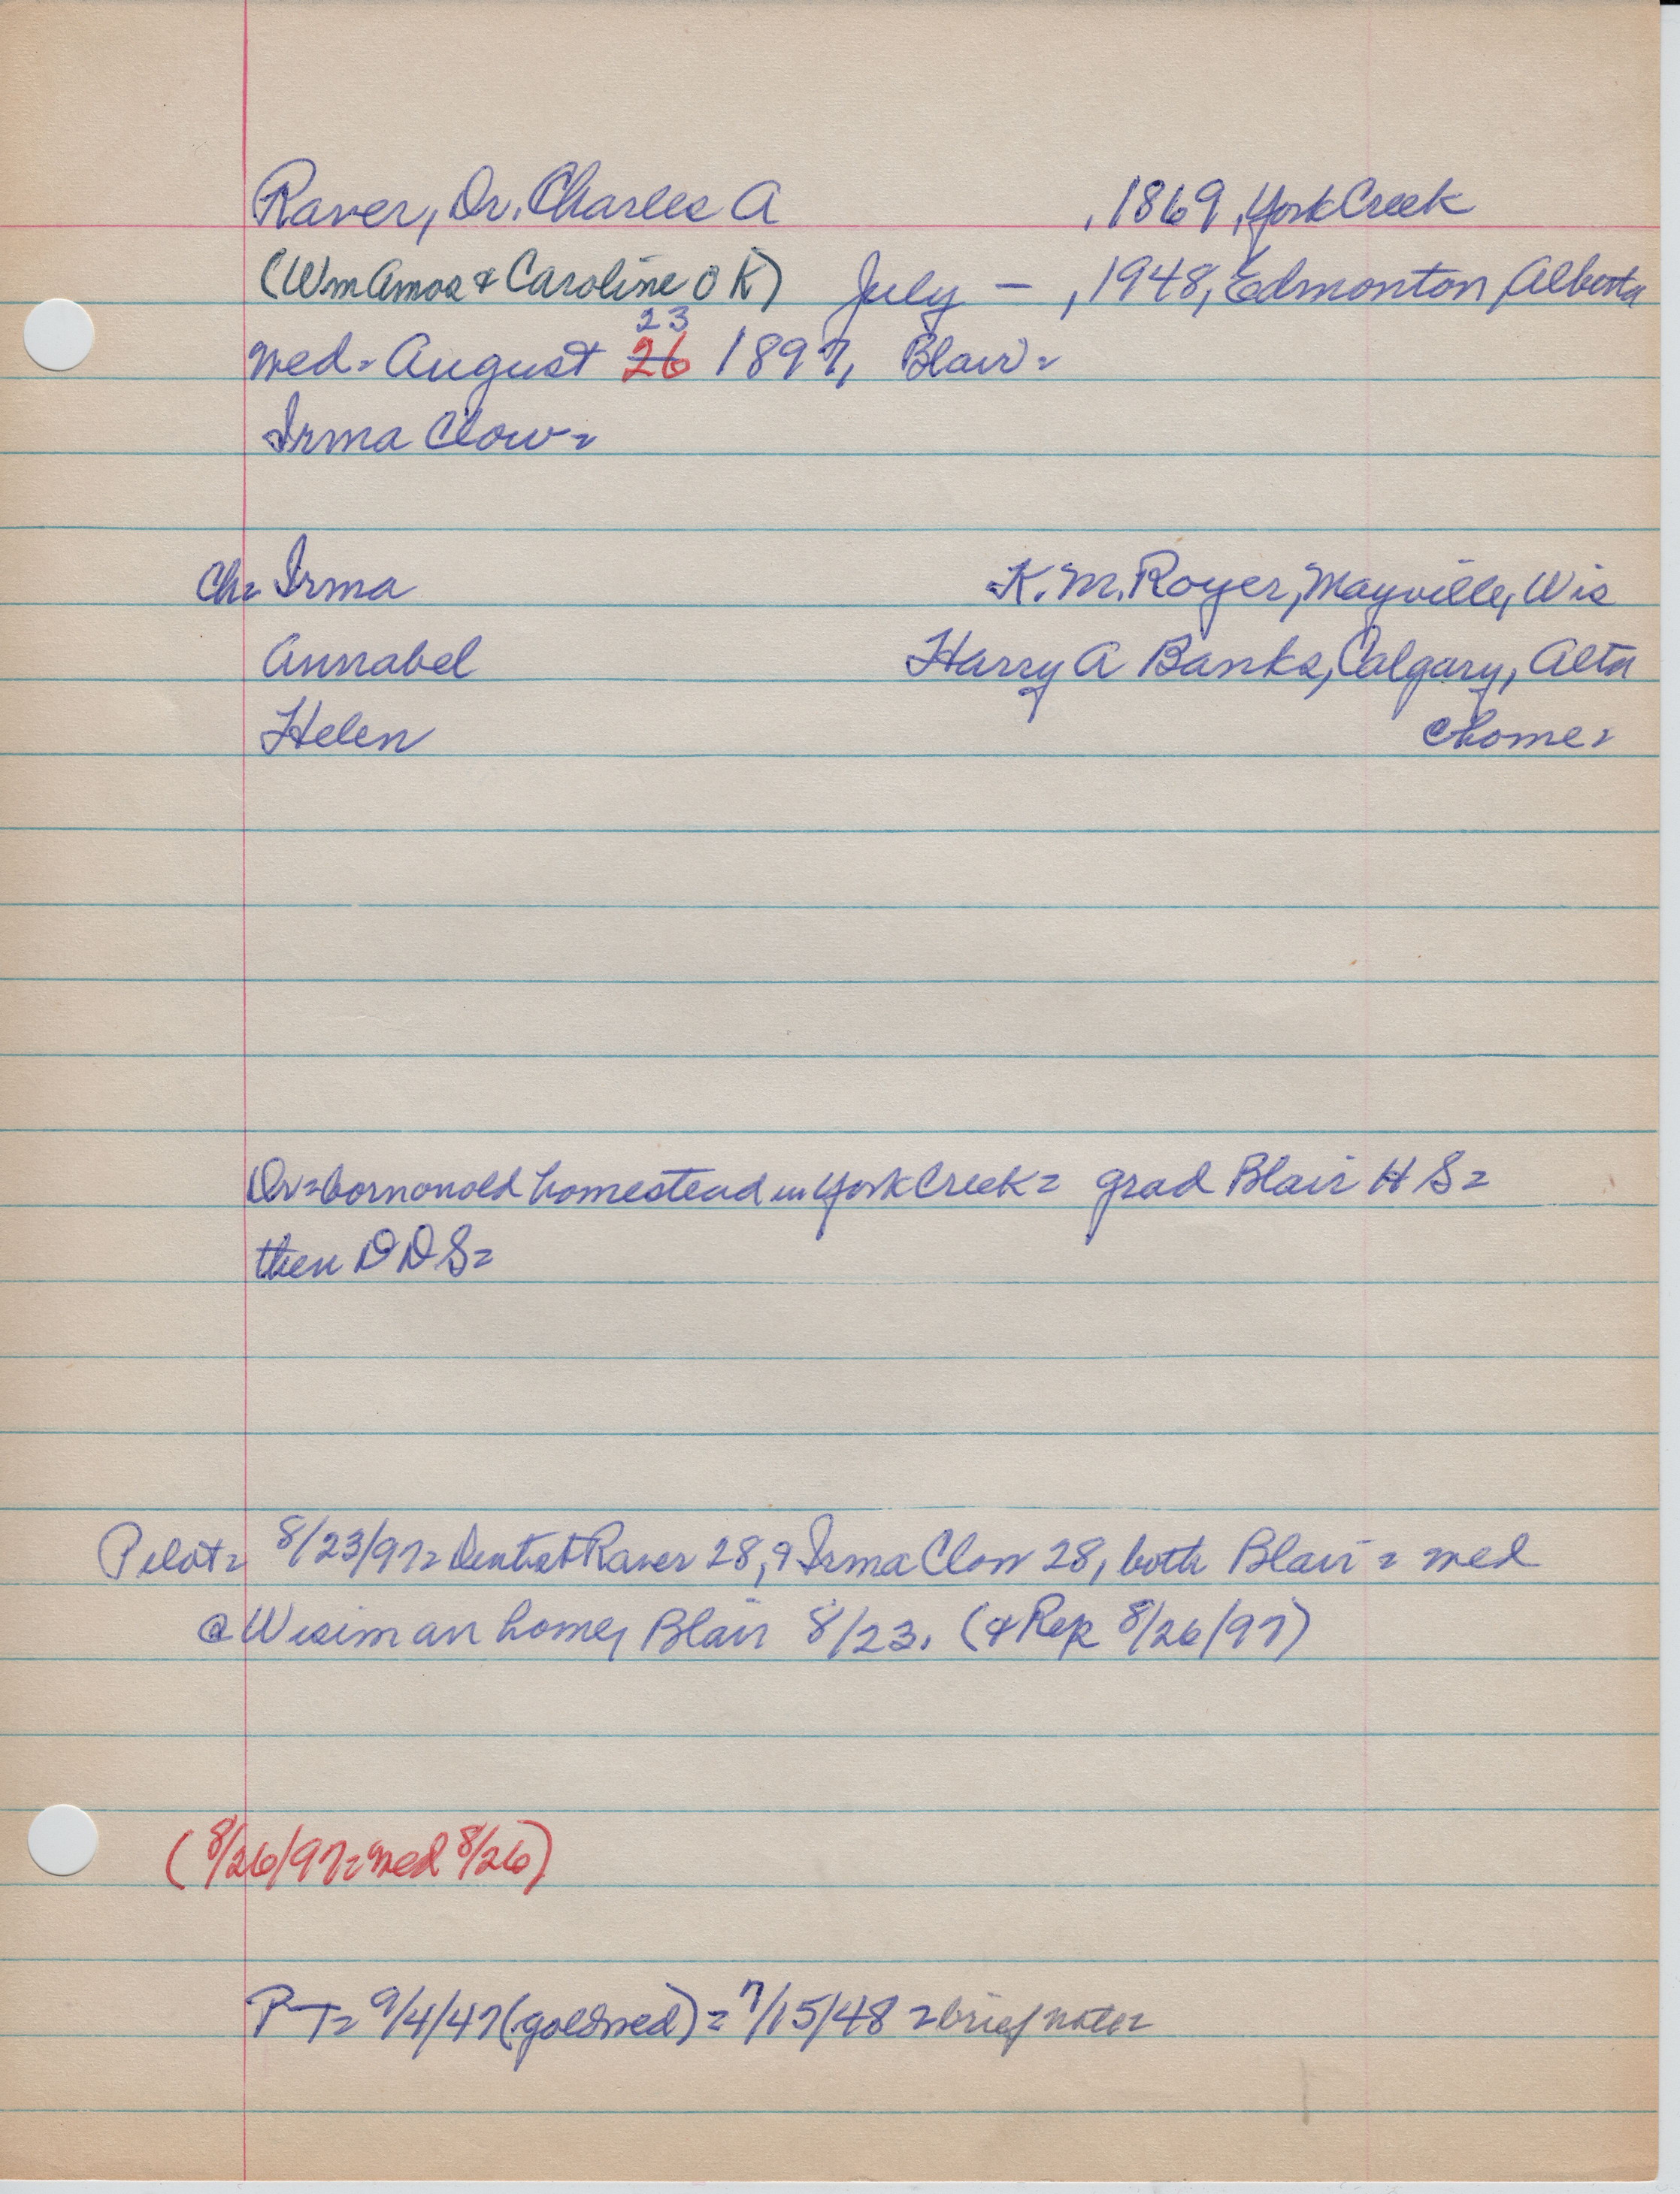 Raver, Dr. Charles A , 1869, York Creek
(Wm Amos & Caroline OK) July — , 1948, Edmonton, Alberta
23
wed= August 26 1897, Blair=
Irma Clow=
Ch= Irma K. M. Royer, Mayville, Wis
Annabel Harry A Banks, Calgary, Alta
Helen @home=
Dr= born on old homestead in York Creek= grad Blair H S=
then D D S=
Pilot= 8/23/97= Dentist Raver 28, & Irma Clow 28, both Blair= wed
@ Wiseman home, Blair 8/23. (& Rep 8/26/97)
(8/26/97= wed 8/26)
PT= 9/4/47 (gold wed)= 7/15/48 = brief note=